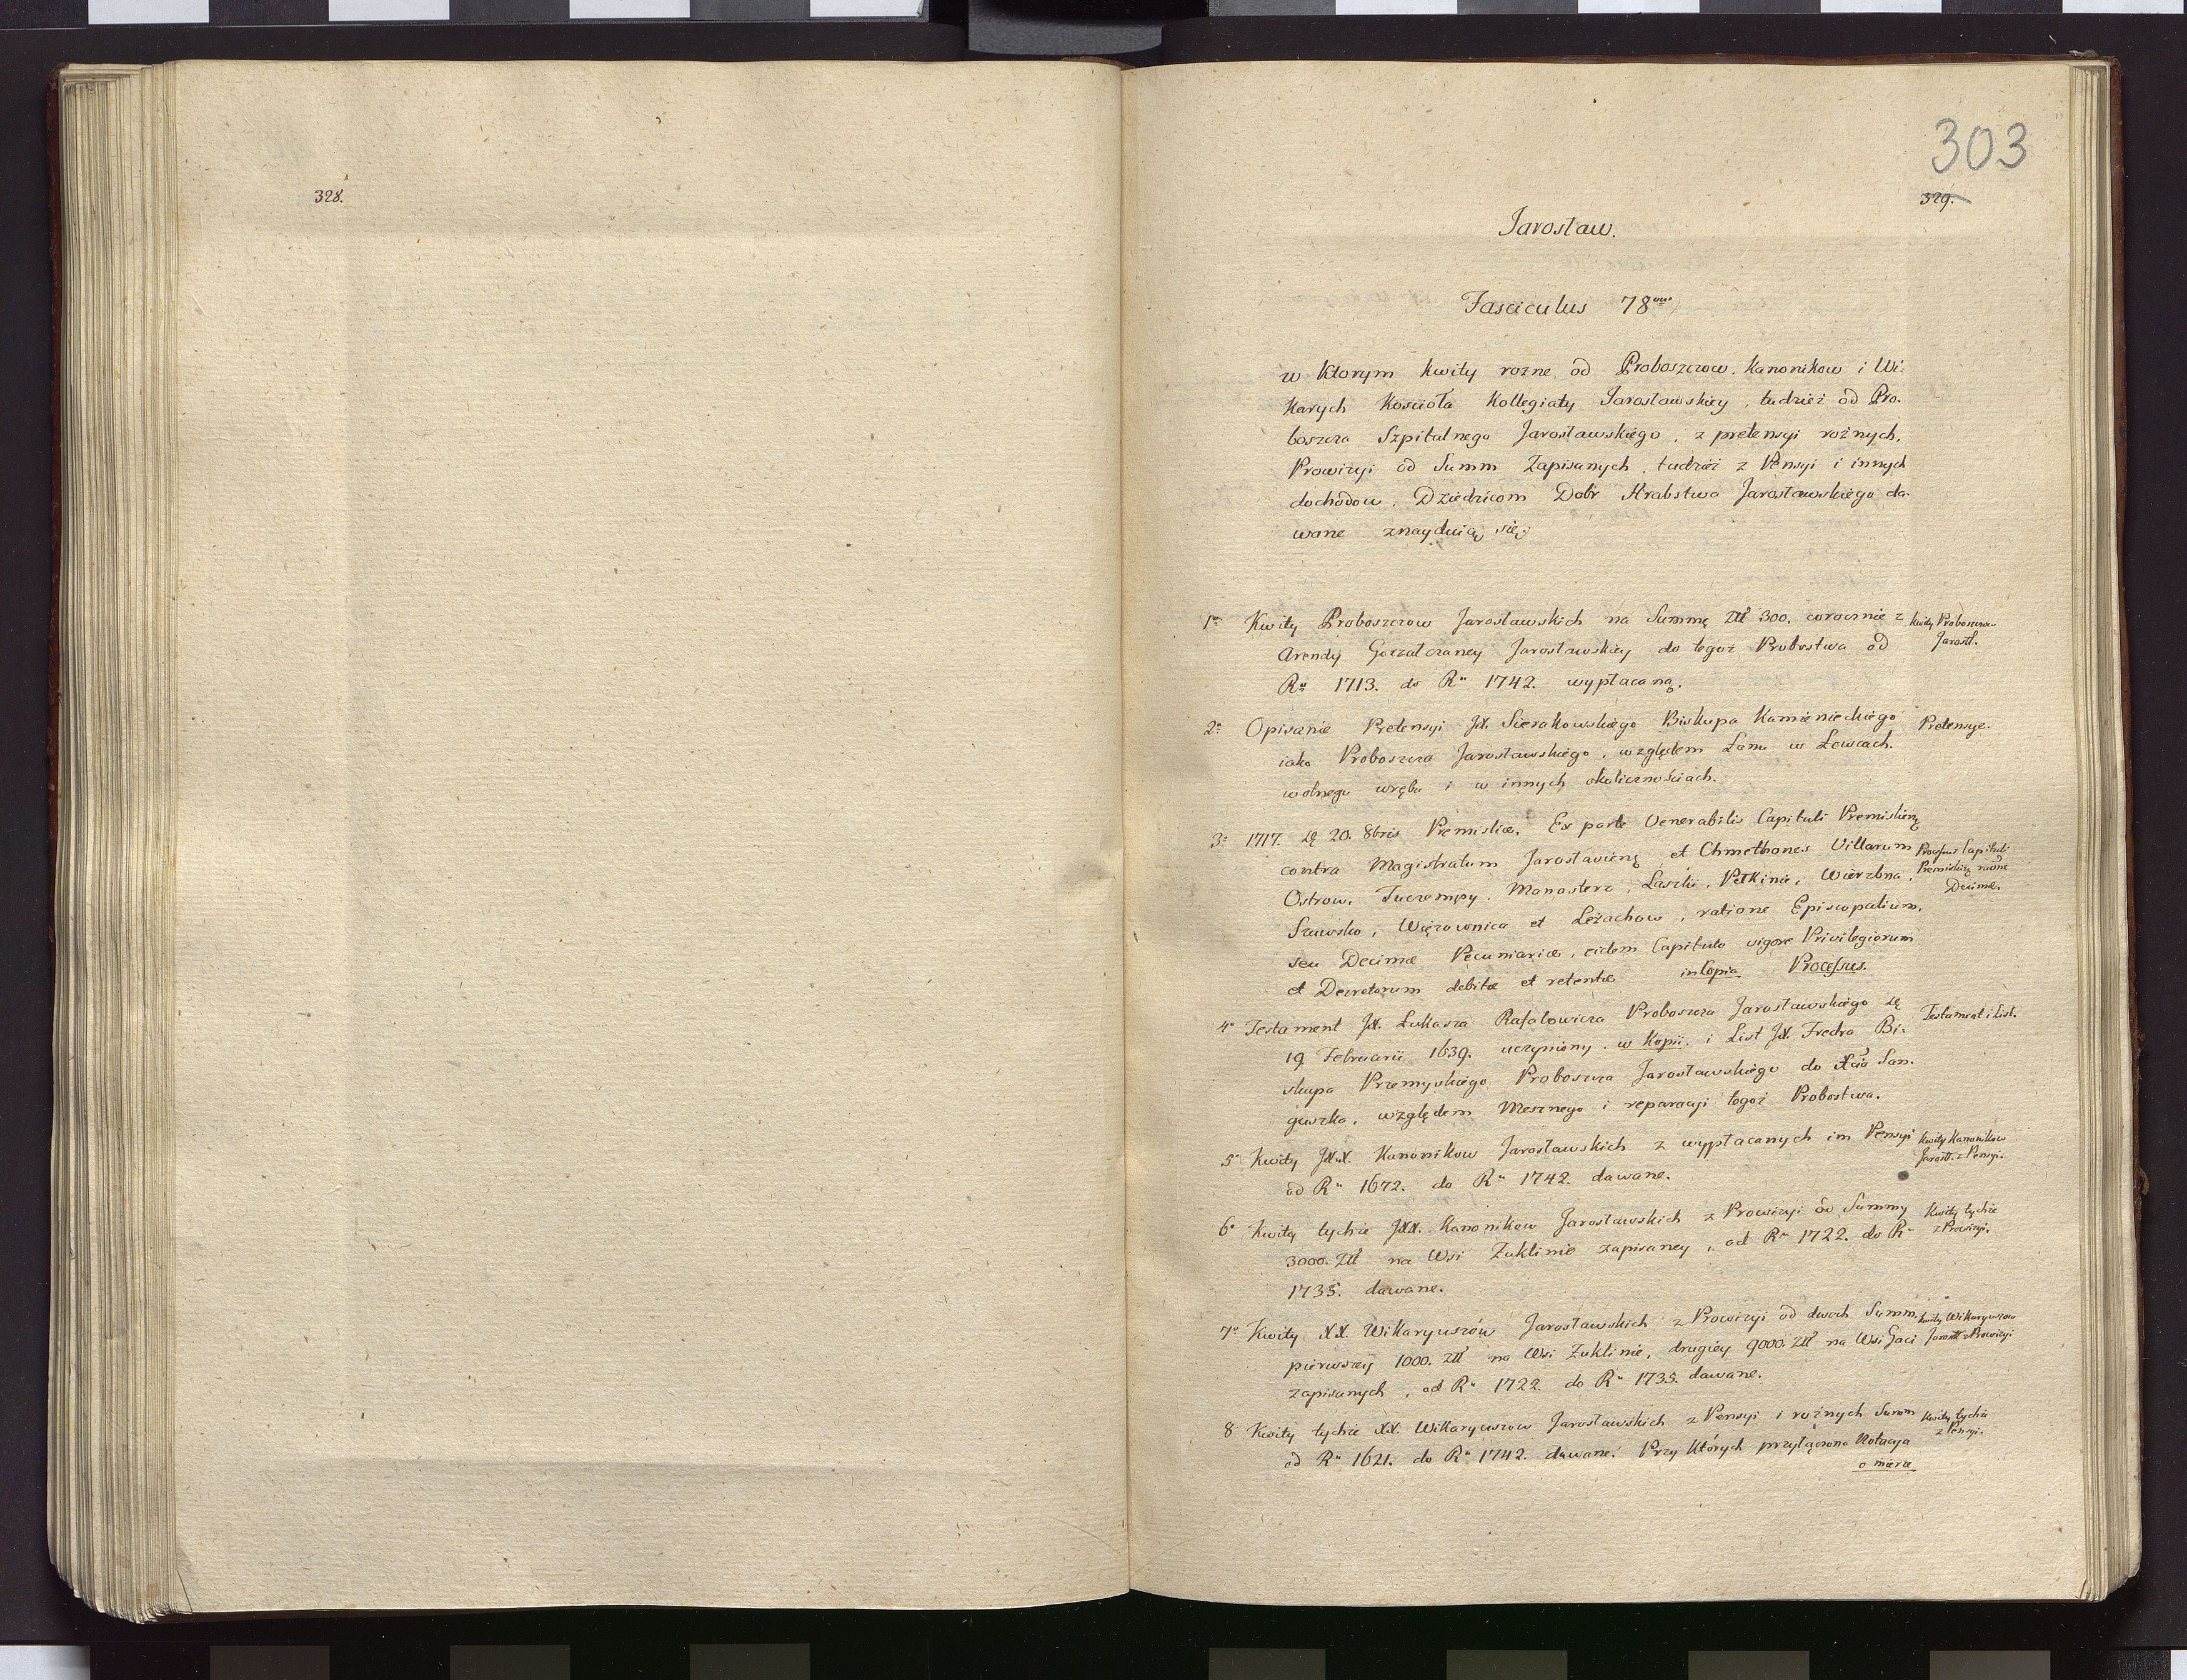 328.
303
329.
Jarosław.
Fasciculus 78vus
w Ktorym kwity rozne od Proboszczow. Kanonikow i Wi:
karych Kościoła Kollegiaty Jarosławskiey, tudzież od Pro:
boszcza Szpitalnego Jarosławskiego, z pretensyi rożnych,
Prowizyi od Summ Zapisanych, tudzież z Pensyi i innych
dochodow, Dziedzicom Dobr Hrabstwa Jarosławskiego da:
wane znayduią się.
1o Kwity Proboszczow Jarosławskich na Summę Złł 300. corocznie z
Kwity Proboszczow
Arendy Gorzałczaney Jarosławskiey do tegoż Probostwa od
Jarosł.
Ru 1713. do Ru 1742. wypłacaną.
2o Opisanie Pretensyi JX. Sierakowskiego Biskupa Kamienieckiego
Pretensye.
iako Proboszcza Jarosławskiego, względem Łanu w Łowcach.
wolnego wrębu i w innych okolicznościach.
3o 1717. 20. 8bris Premisliæ, Ex parte Venerabilis Capituli Premislienę
contra Magistratum Jarosłavienę et Chmethones Villarum
Processus Capituli
Ostrow, Tuczempy, Manasterz, Laszki, Pełkinie, Wierzbna,
Premislienę raone
Decimæ.
Szuwsko, Więzownica et Leżachow, ratione Episcopalium,
seu Decimæ Pecuniariæ, eidem Capitulo vigore Privilegiorum
et Decretorum debitæ et retentæ in Copia Processus.
4o Testament JX. Łukasza Rafałowicza Proboszcza Jarosławskiego
Testament i List.
19 Februarii 1639. uczyniony w Kopii. i List JX. Fredra Bi:
skupa Przemyskiego Proboszcza Jarosławskiego do Xcia San:
guszka, względem Mesznego i reparacyi togoż Probostwa.
5o Kwity JXX. Kanonikow Jarosławskich z wypłacanych im Pensyi
Kwity Kanonikow
od Ru 1672. do Ru 1742. dawane.
Jarosł. z Pensyi.
6o Kwity tychże JXX. Kanonikow Jarosławskich z Prowizyi od Summy
Kwity tychże
3000. Złł na Wsi Zuklinie zapisaney, od Ru 1722. do Ru
z Prowizyi.
1735. dawane.
7o Kwity XX. Wikaryuszów Jarosławskich z Prowizyi od dwoch Summ,
Kwity Wikaryuszow
pierwszey 1000. złł na Wsi Zuklinie, drugiey 9000. złł na Wsi Gaci
Jarosł. z Prowizyi
zapisanych, od Ru 1722. do Ru 1735. dawane.
8 Kwity tychże XX. Wikaryuszow Jarosławskich z Pensyi i rożnych Summ
Kwity tychże
z Pensyi.
od Ru 1621. do Ru 1742. dawane. Przy Których przyłączona Notacya
o mierze